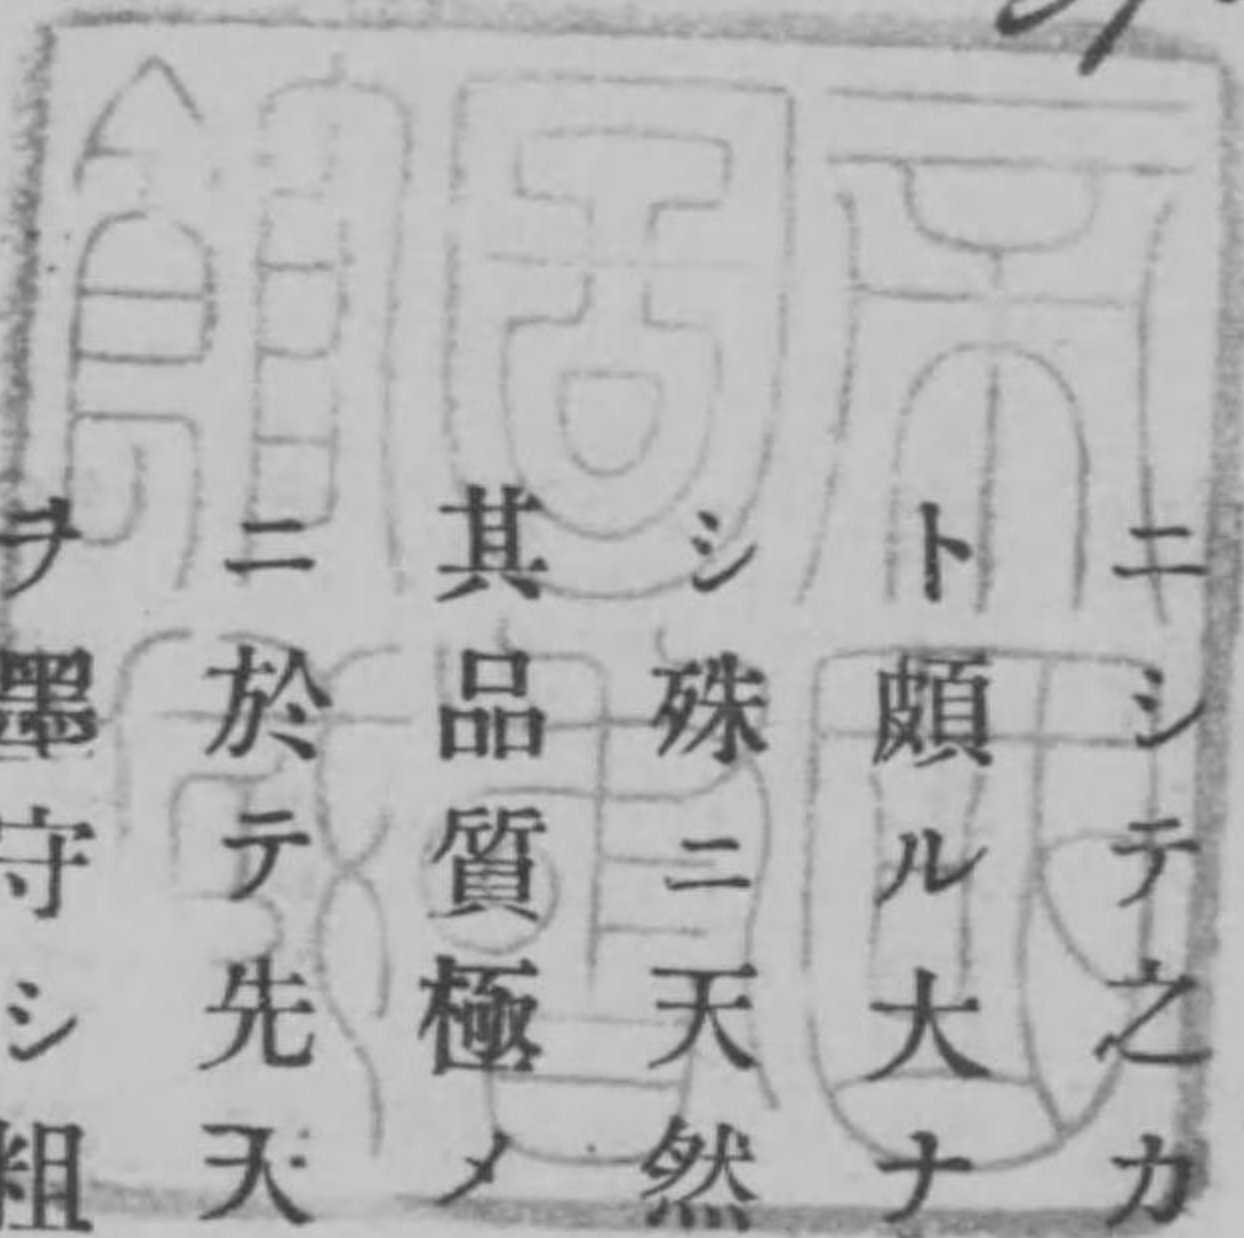 ニシテ之カ
ト頗ル大ナ
シ殊ニ天然
其品質極メ
ニ於テ先天
ヲ墨守シ粗
帝國圖書館藏